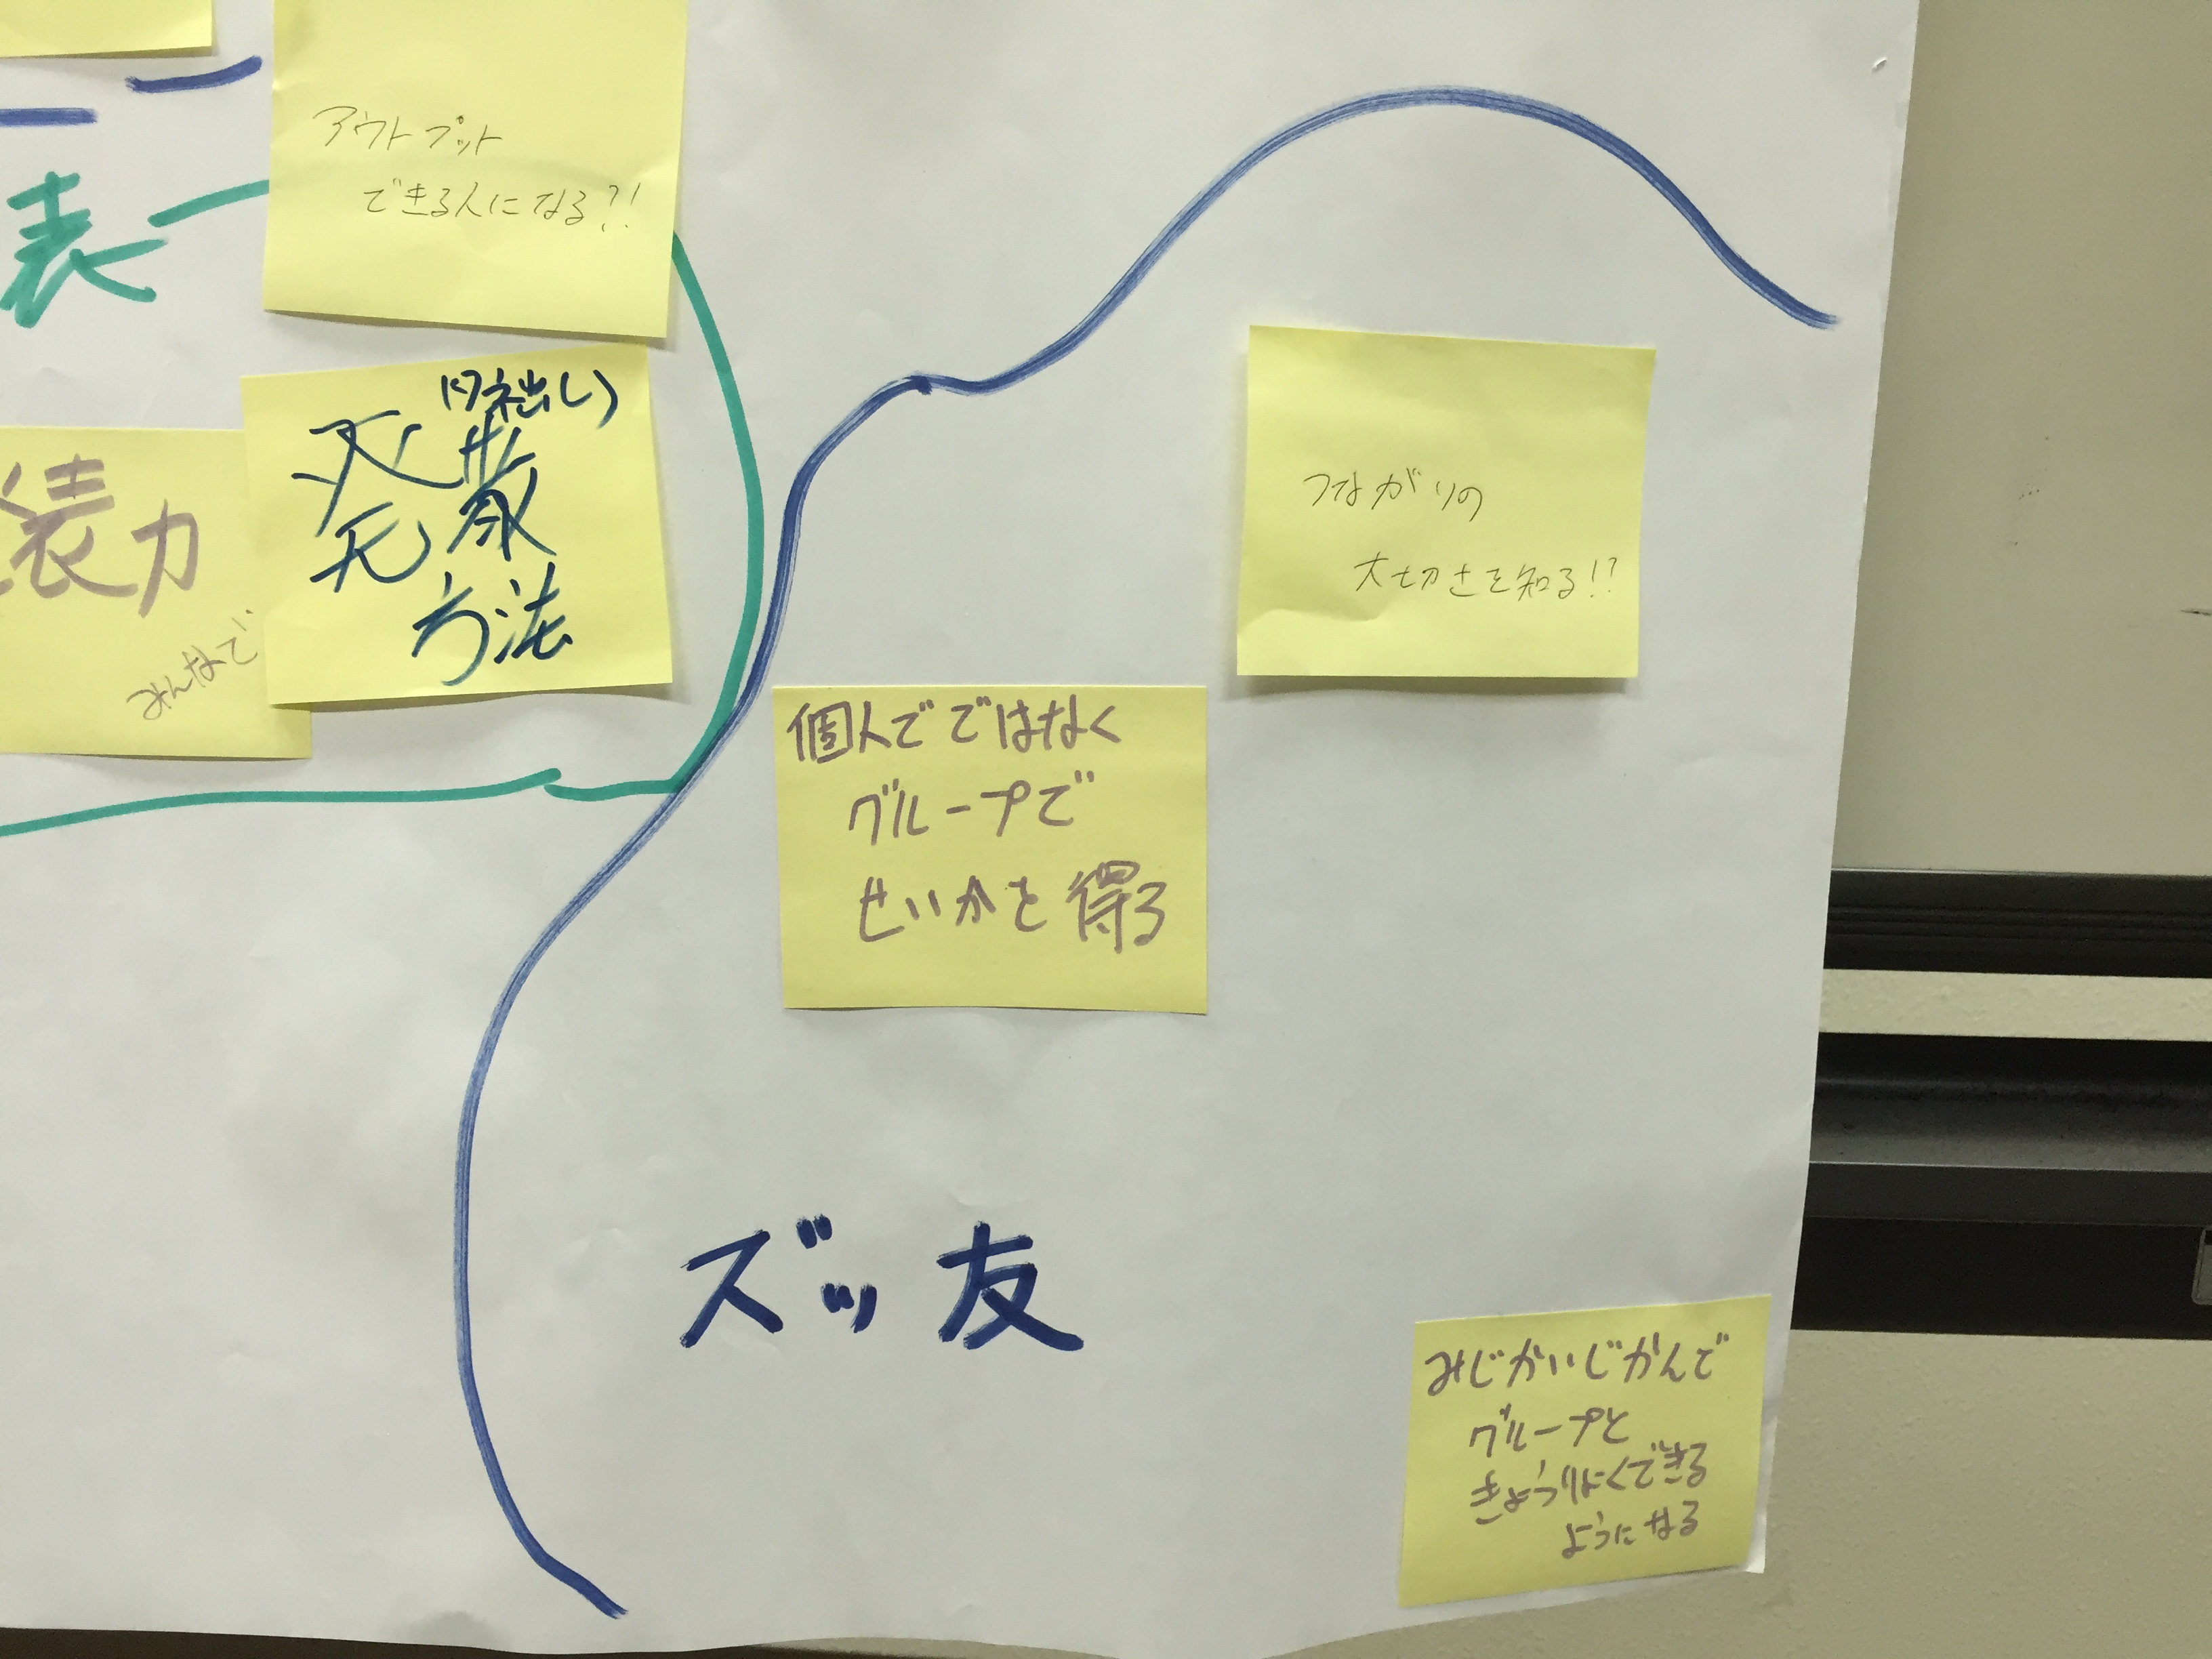 アウトプット
できる人になる?!
表
(ネタ出し)
発散
方法
表力
みんなで
つながりの
大切さを知る!?
個人でではなく
グループで
せいかを得る
ズッ友
みじかいじかんで
グループと
きょうりょくできる
ようになる